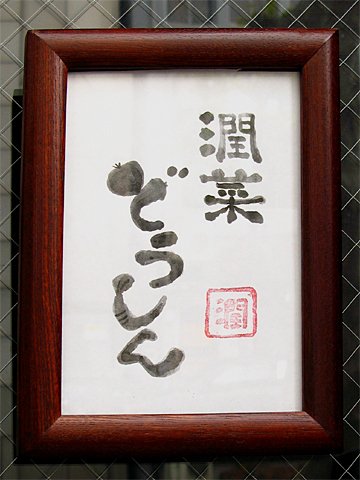 潤菜
どうしん
潤